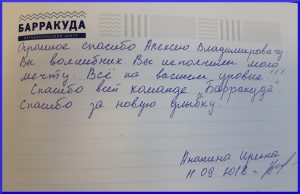 БАРРАКУДА
Огромное спасибо Алексею Владимировичу
Вы волшебник. Вы исполнили мою
мечту. Всё на высшем уровне!!!
Спасибо всей команде „Барракуда"
Спасибо за новую улыбку!
Ананина Ирина
11.09.2018.